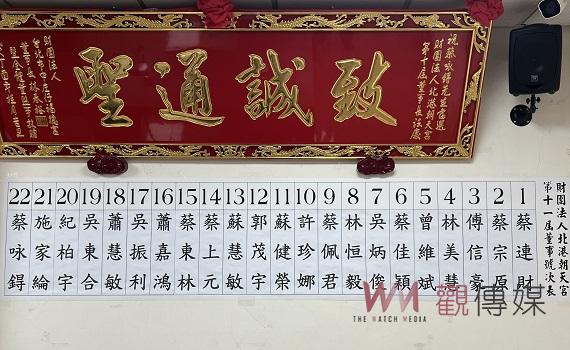 祝蔡咏鍀先生當選
財團法人北港朝天宮
第十屆董事長誌慶
致誠通聖
財團法人
台北市中庄仔福德宮
財團法人北港朝天宮
第十一屆董事號次表
1 蔡連財
2 蔡宗原
3 傅信豪
4 林美慧
5 曾維斌
6 蔡佳穎
7 吳炳俊
8 林恒毅
9 蔡佩君
10 許珍娜
11 蘇健榮
12 郭茂宇
13 蘇慧敏
14 蔡上元
15 蔡東林
16 蕭嘉鴻
17 吳振利
18 蕭慧敏
19 吳東合
20 紀柏宇
21 施家綸
22 蔡咏鍀
觀傳媒
THE WATCH MEDIA